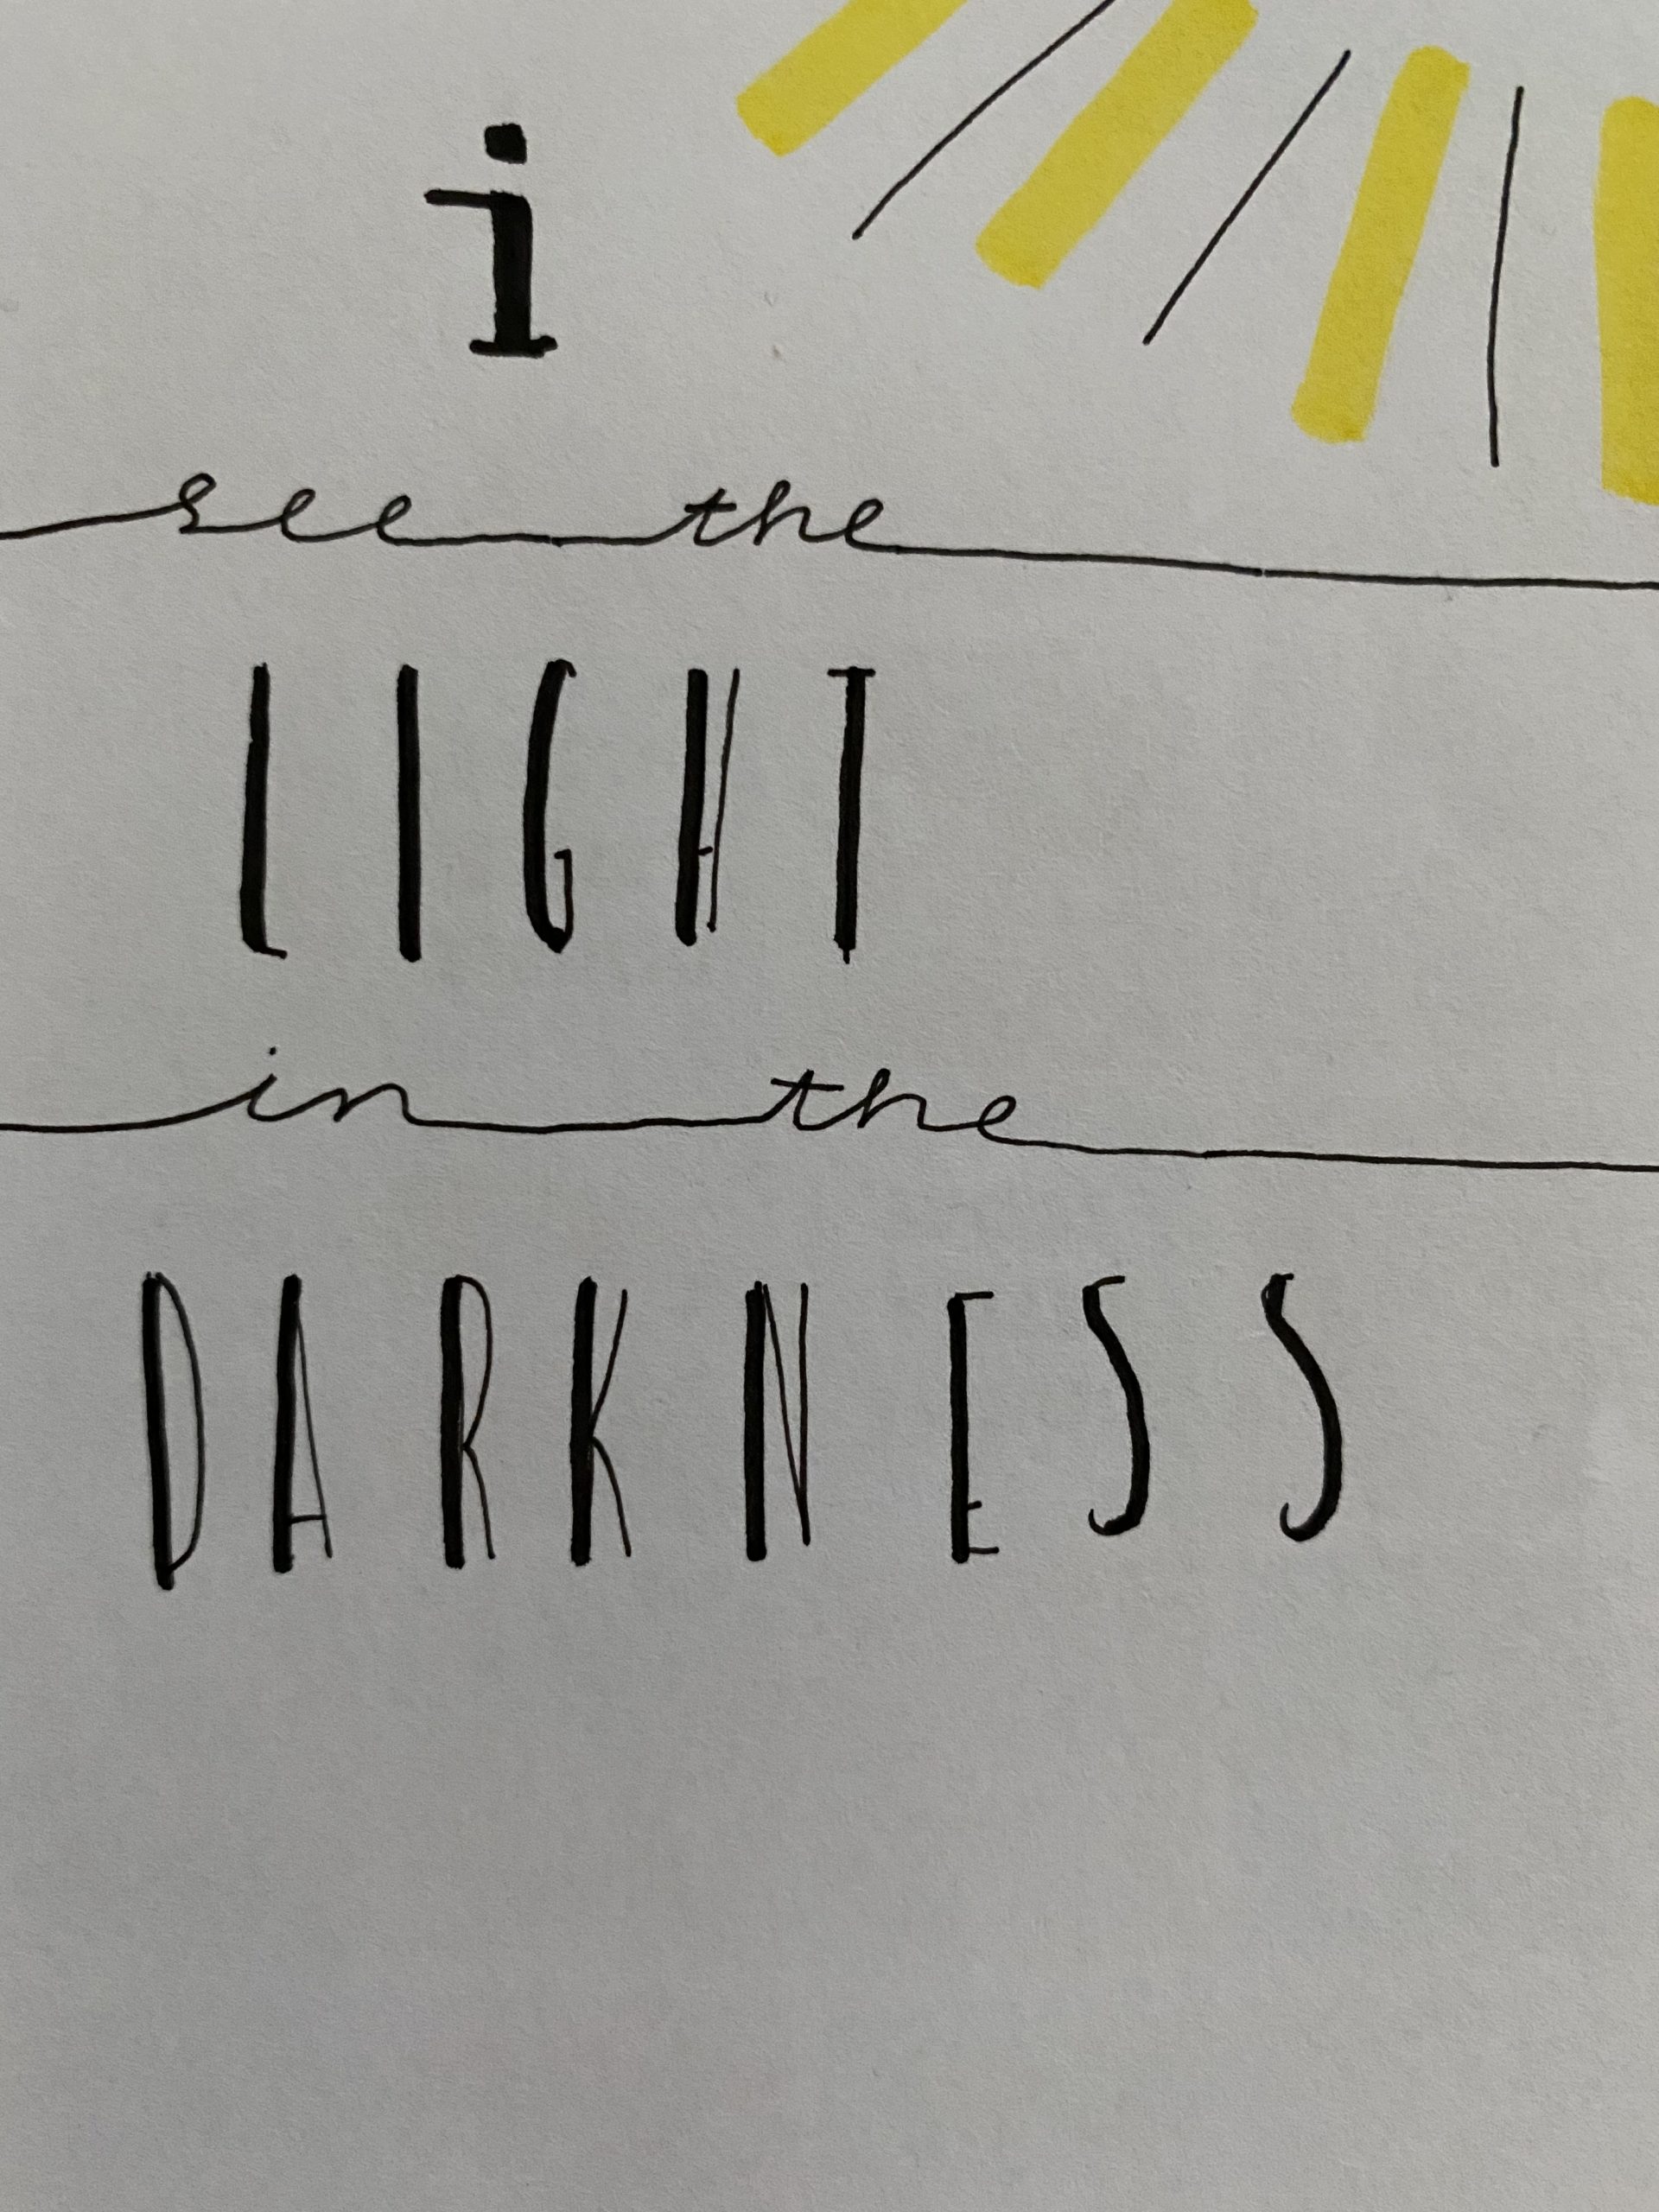 i
see the
LIGHT
in the
DARKNESS